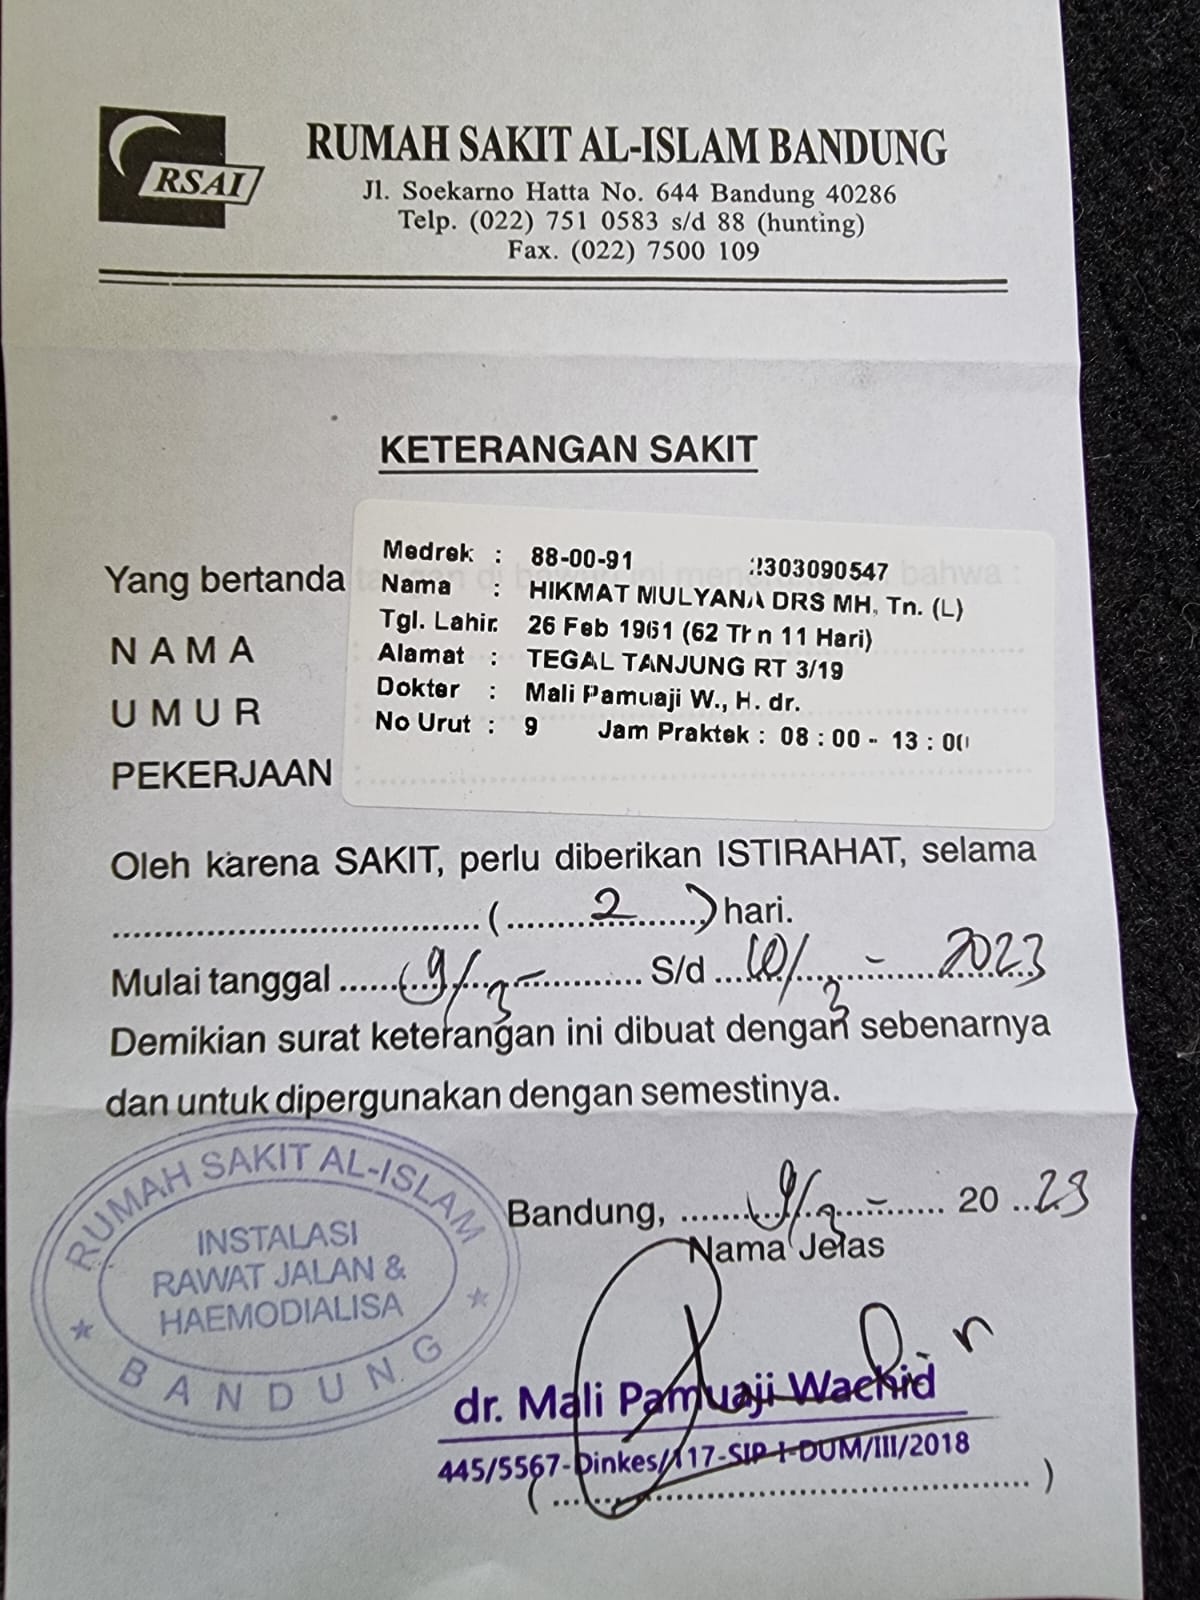 RSAI
RUMAH SAKIT AL-ISLAM BANDUNG
Jl. Soekarno Hatta No. 644 Bandung 40286
Telp. (022) 751 0583 s/d 88 (hunting)
Fax. (022) 7500 109
KETERANGAN SAKIT
Medrek : 88-00-91 2303090547
Yang bertanda bahwa :
Nama : HIKMAT MULYANA DRS MH, Tn. (L)
Tgl. Lahir: 26 Feb 1961 (62 Thn 11 Hari)
NAMA
Alamat : TEGAL TANJUNG RT 3/19
Dokter : Mali Pamuaji W., H. dr.
UMUR
No Urut : 9 Jam Praktek : 08 : 00 - 13 : 00
PEKERJAAN
Oleh karena SAKIT, perlu diberikan ISTIRAHAT, selama
(2) hari.
Mulai tanggal 9/3 - S/d 10/3 - 2023
Demikian surat keterangan ini dibuat dengan sebenarnya
dan untuk dipergunakan dengan semestinya.
RUMAH SAKIT AL-ISLAM
INSTALASI
RAWAT JALAN &
HAEMODIALISA
BANDUNG
Bandung, 9/3 - 20 23
Nama Jelas
dr. Mali Pamuaji Wachid
445/5567-Dinkes/117-SIP-I-DUM/III/2018
( )